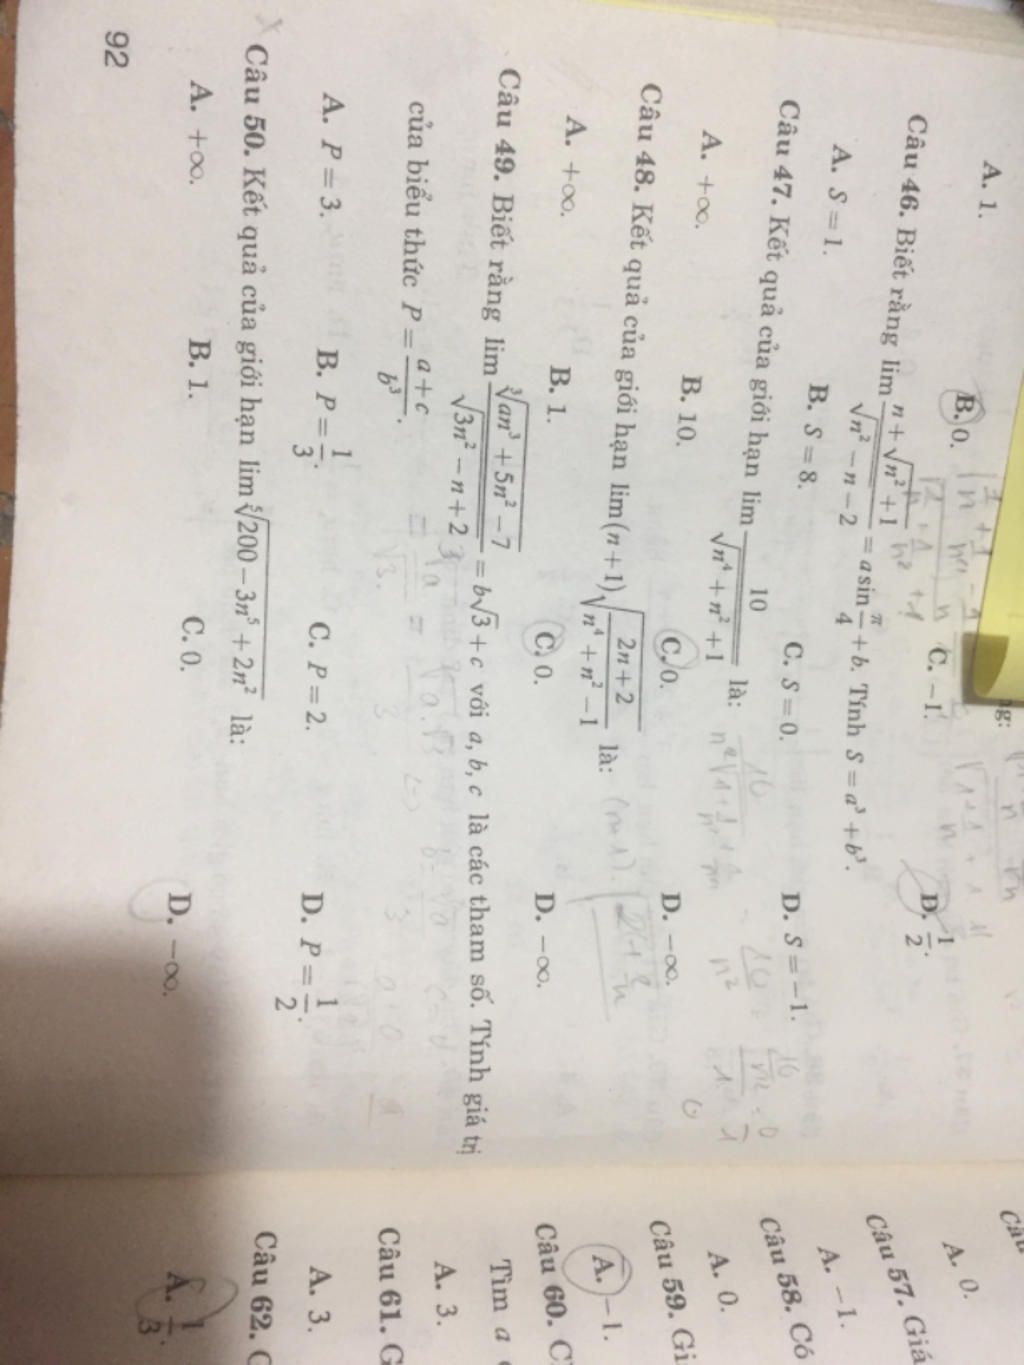 ng:
A. 1. B. 0. C. −1. D. 1/2.
Câu 46. Biết rằng lim (n + √(n² + 1))/√(n² − n − 2) = a sin π/4 + b. Tính S = a³ + b³.
A. S = 1. B. S = 8. C. S = 0. D. S = −1.
Câu 47. Kết quả của giới hạn lim 10/√(n⁴ + n² + 1) là:
A. +∞. B. 10. C. 0. D. −∞.
Câu 48. Kết quả của giới hạn lim (n + 1)√((2n + 2)/(n⁴ + n² − 1)) là:
A. +∞. B. 1. C. 0. D. −∞.
Câu 49. Biết rằng lim ∛(an³ + 5n² − 7)/√(3n² − n + 2) = b√3 + c với a, b, c là các tham số. Tính giá trị
của biểu thức P = (a + c)/b³.
A. P = 3. B. P = 1/3. C. P = 2. D. P = 1/2.
Câu 50. Kết quả của giới hạn lim ⁵√(200 − 3n⁵ + 2n²) là:
A. +∞. B. 1. C. 0. D. −∞.
92
A. 0.
Câu 57. Giá
A. −1.
Câu 58. Có
A. 0.
Câu 59. Gi
A. −1.
Câu 60. C
Tìm a
A. 3.
Câu 61. G
A. 3.
Câu 62. C
A. 1/3.